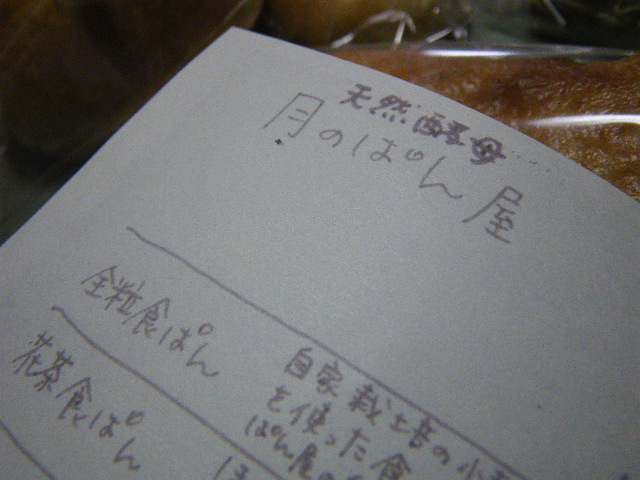 天然酵母
月のぱん屋
全粒食ぱん
自家栽培の小麦
を使った食
ぱん屋の
花茶食ぱん
ほ